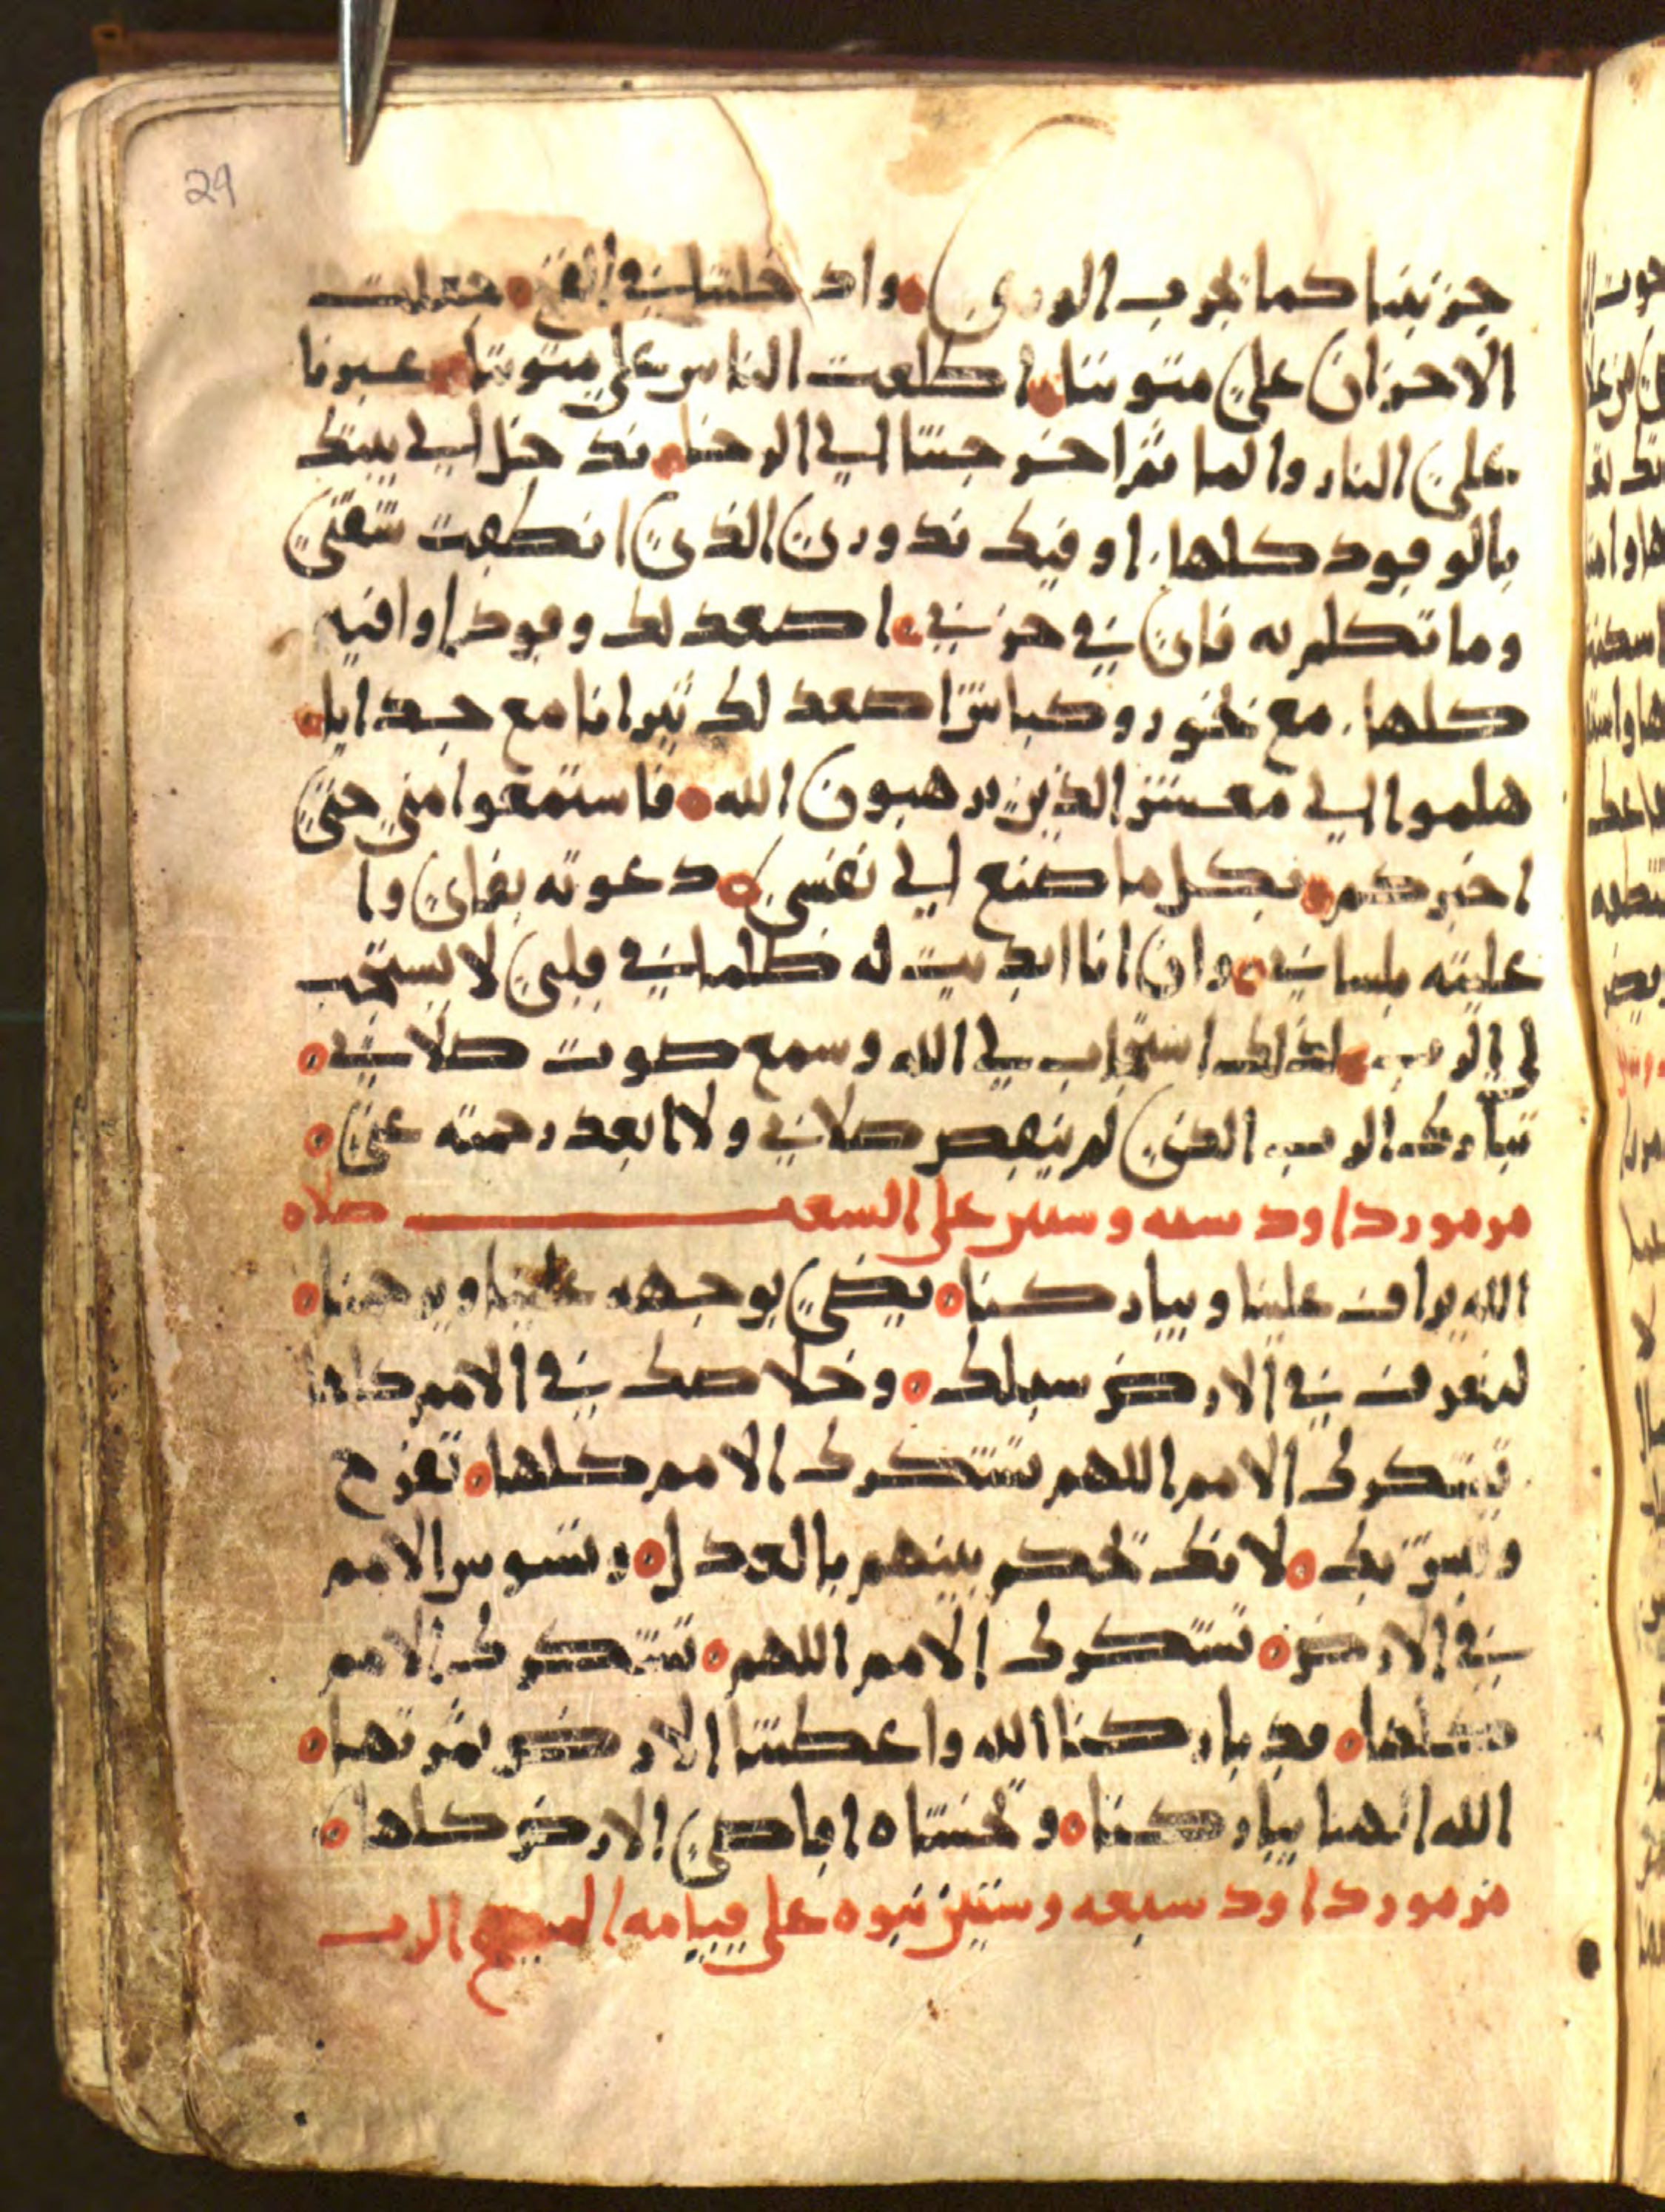 29
جزبتنا كما تجرب الورق واد خلتنا في الفخ جعلت
الاحزان على متوننا اطلعت الناس على متوننا عبرنا
على النار والما ثم اخرجتنا الى الرخا ندخل الى بيتك
بالوقود كلها اوفيك ندوري الذي انطقت شفتي
وما تكلم به فاي في حزني اصعد لك وقود اوافيه
كلها مع بخور وكباش اصعد لك ثيرانا مع جدايا
هلموا الي معشر الذين يرهبون الله فاستمعوا مني حتى
اخبركم بكل ما صنع الي نفسي دعوته بفاي وا
عليته بلساني وان انا ابديت له ظلما في قلبي لا يستجب
لي الرب لذلك استجاب لي الله وسمع صوت صلاتي
تبارك الرب الذي لم ينقص صلاتي ولا ابعد رحمته عني
مزمور داود سته وستين على السعه صلاه
الله يراف علينا ويباركنا يضي بوجهه علينا ويرحمنا
لنعرف في الارض سبلك وخلاصك في الامم كلها
تشكرك الامم اللهم تشكرك الامم كلها تفرح
وتسر بك لانك تحكم بينهم بالعدل وتسوس الامم
في الارض تشكرك الامم اللهم تشكرك الامم
كلها قد باركنا الله واعطتنا الارض ثمرتها
الله الهنا يباركنا وتخشاه اقاصي الارض كلها
مزمور داود سبعه وستين نبوه على قيامه المسيح الرب